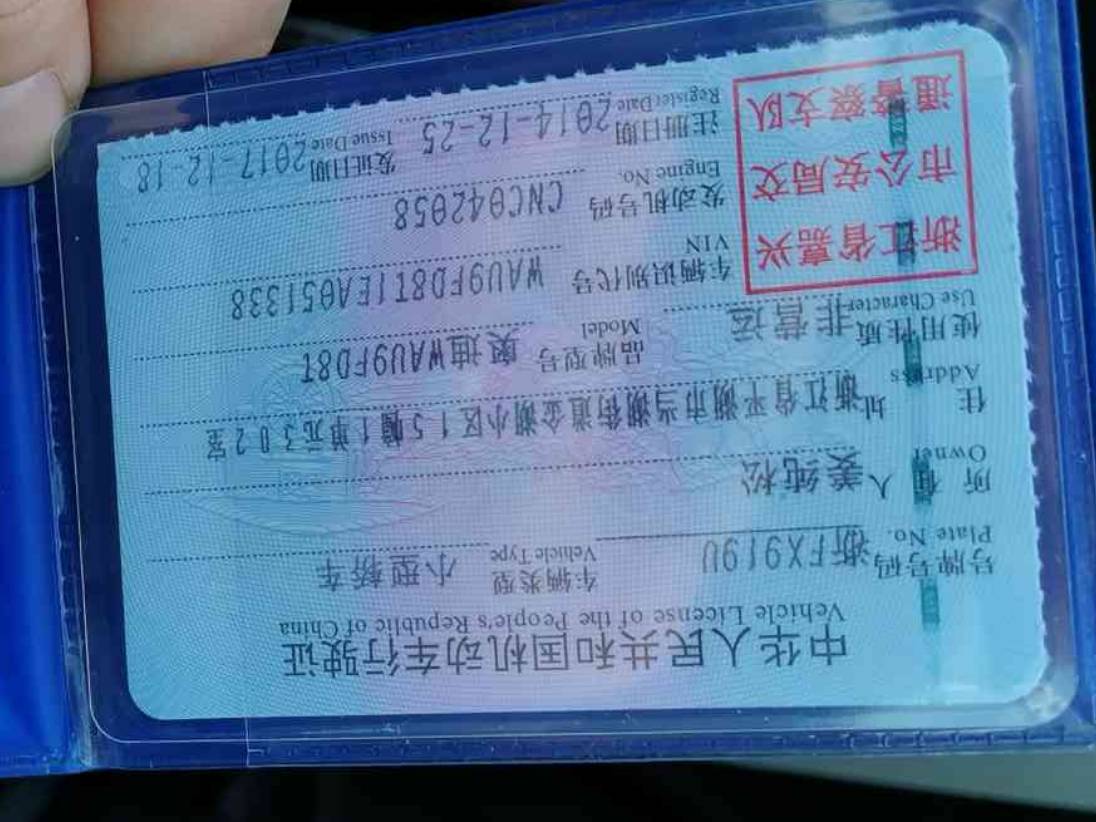 中华人民共和国机动车行驶证
Vehicle License of the People's Republic of China
号牌号码 浙FX919U 车辆类型 小型轿车
Plate No. Vehicle Type
所有人 姜纯松
Owner
住址 浙江省平湖市当湖街道金湖小区15幢1单元302室
Address
使用性质 非营运 品牌型号 奥迪WAU9FD8T
Use Character Model
浙江省嘉兴
市公安局交
通警察支队
车辆识别代号 WAU9FD8T1EA051338
VIN
发动机号码 CNC042058
Engine No.
注册日期 2014-12-25 发证日期 2017-12-18
Register Date Issue Date